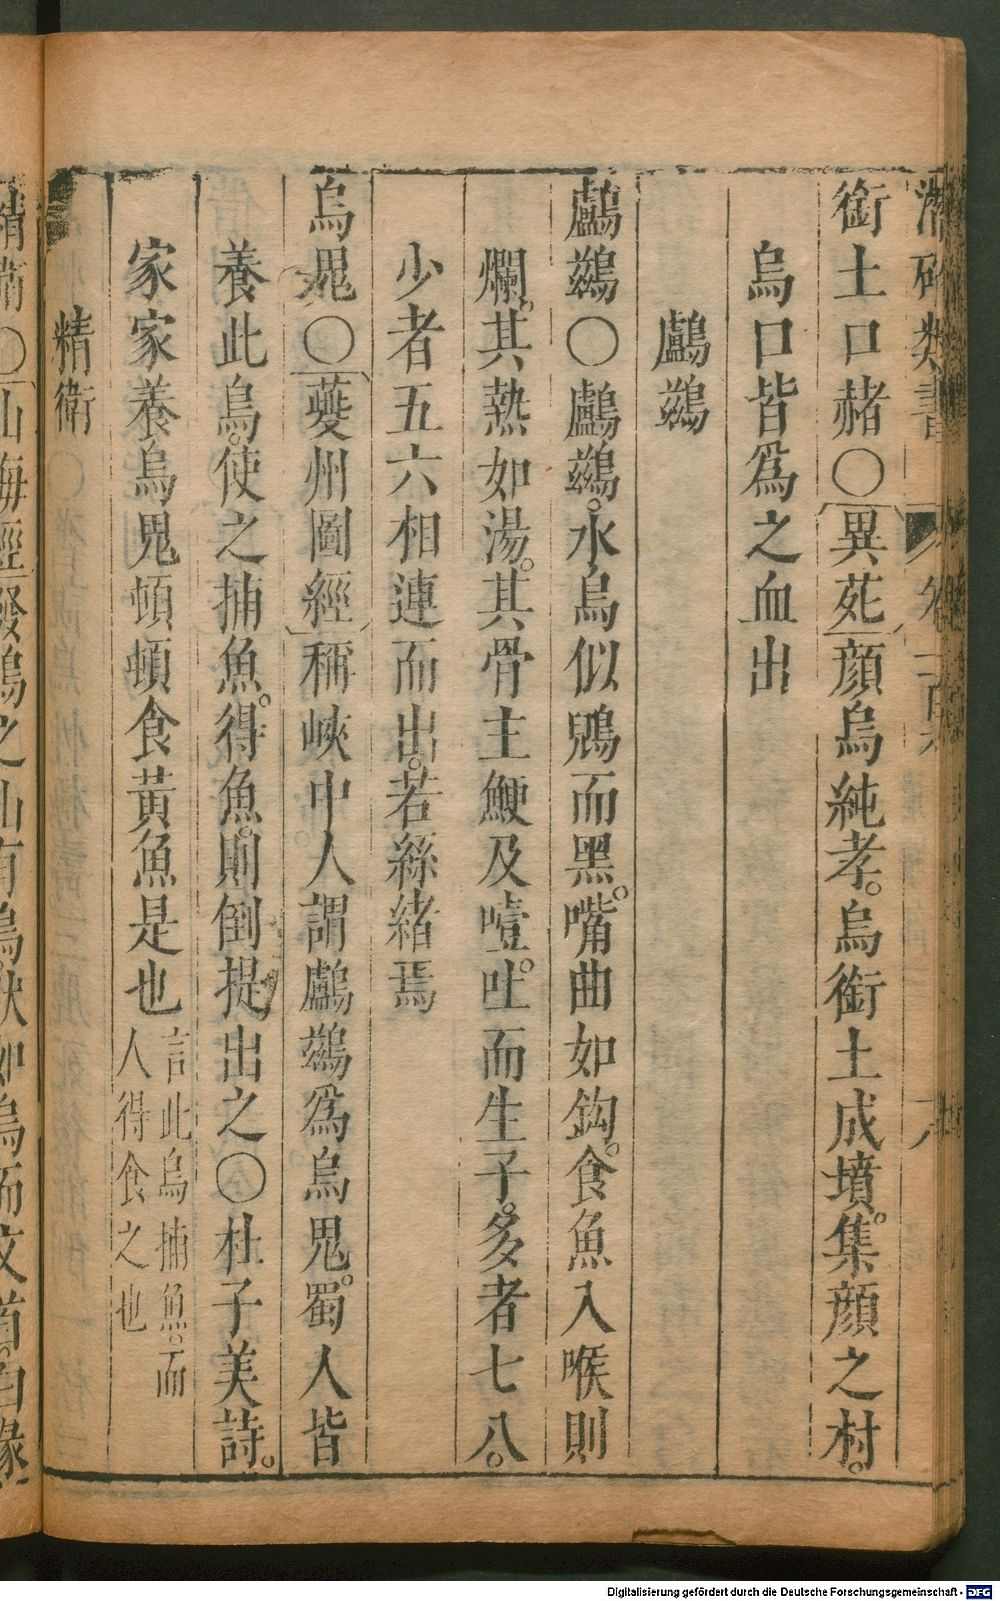 潛確類書 卷一百 六
銜土口赭○異苑顔烏純孝。烏銜土成墳。集顔之村。
烏口皆爲之血出
鸕鷀
鸕鷀○鸕鷀。水鳥似鶂而黑。嘴曲如鈎。食魚入喉則
爛。其熱如湯。其骨主鯁及噎。吐而生子。多者七八。
少者五六相連而出。若絲緒焉
烏鬼○夔州圖經稱峽中人謂鸕鷀爲烏鬼。蜀人皆
養此鳥。使之捕魚。得魚。則倒提出之○杜子美詩。
家家養烏鬼頓頓食黃魚是也
言此鳥捕魚。而
人得食之也
精衛
精衛○山海經發鳩之山有鳥。狀如烏而文首。白喙
Digitalisierung gefördert durch die Deutsche Forschungsgemeinschaft - DFG